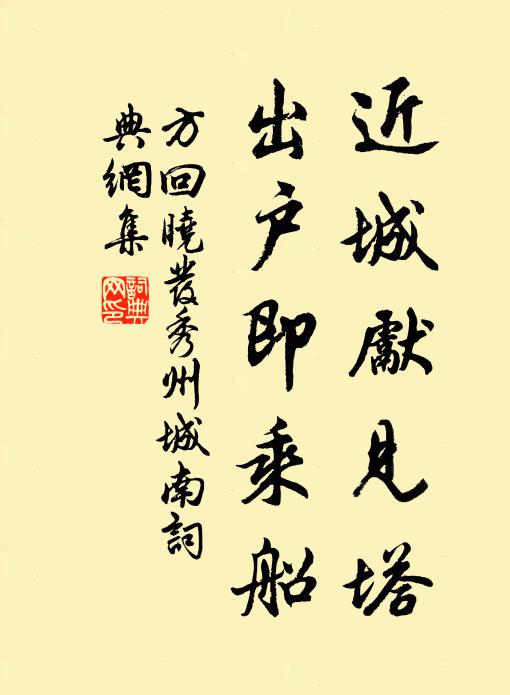 近城獻見塔
出戶即乘船
方回曉發秀州城南詞
典網集
詞典
网印